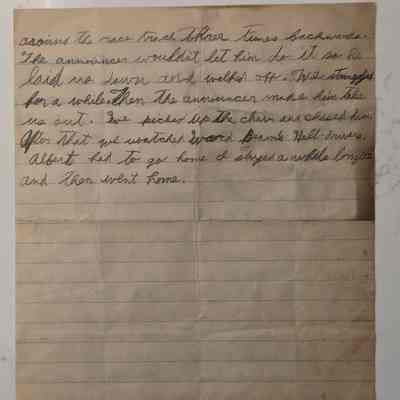 around the race track three times backwards.
The announcer wouldn't let him do it so he
laid us down and walked off. We
for a while. Then the announcer make him take
us out. I've picked up the chain and chased him.
After that we watched Hell drivers.
Albert had to go home I stayed a while longer
and then went home.